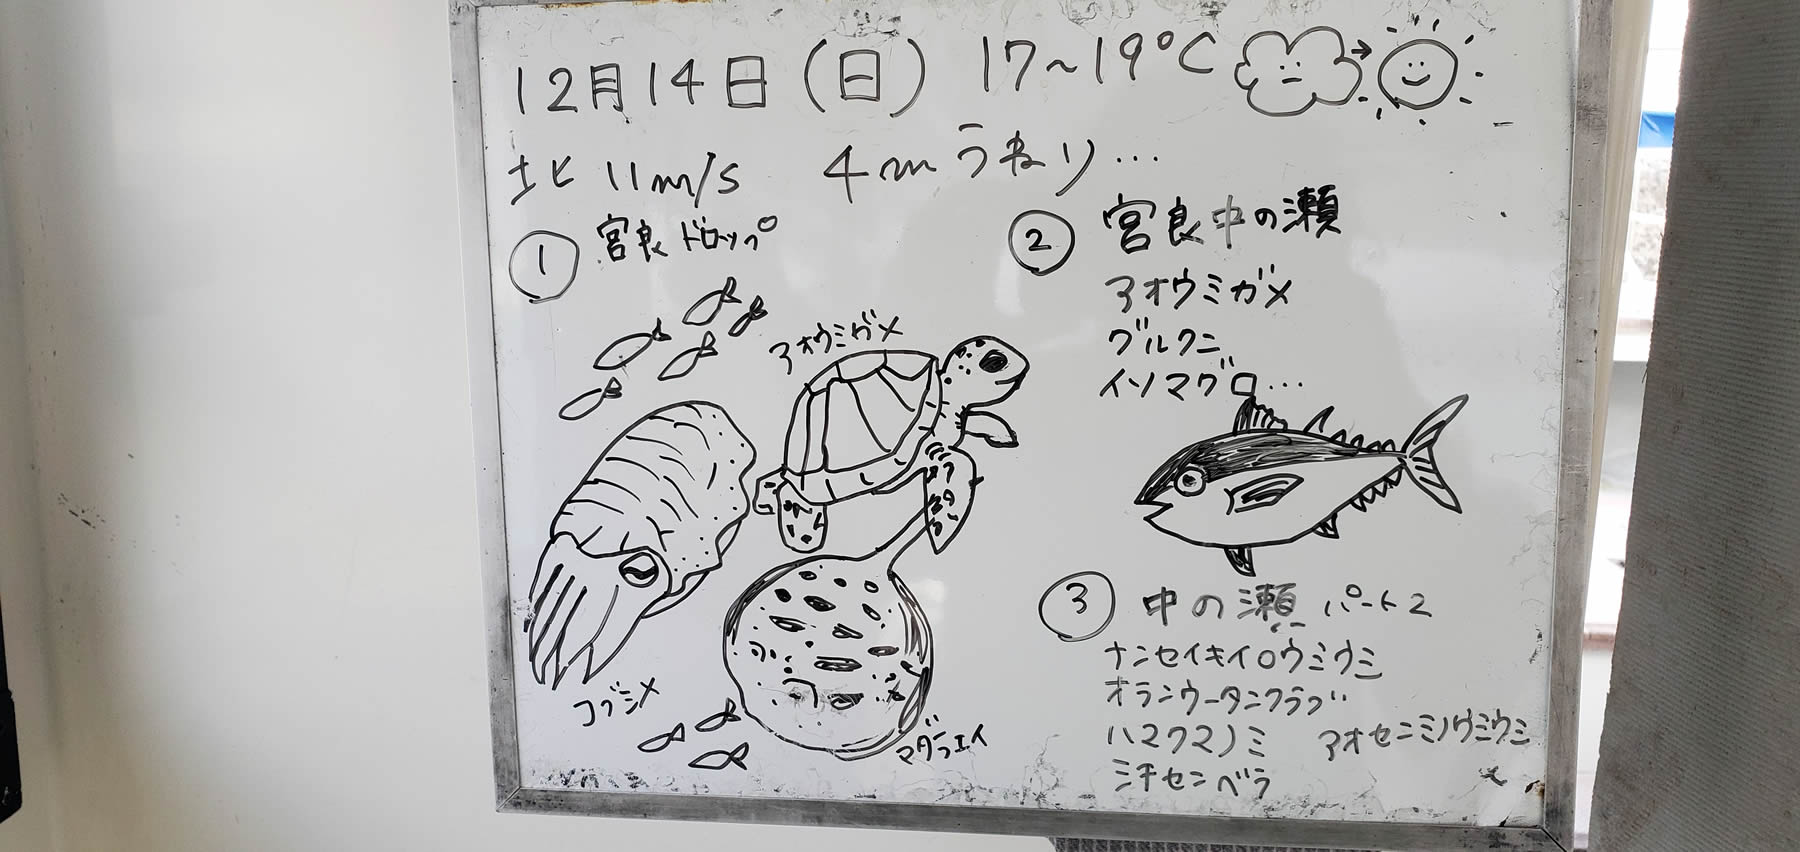 12月14日(日) 17~19℃
北 11m/s 4mうねり…
① 宮良ドロップ
アオウミガメ
コブシメ
マダラエイ
② 宮良中の瀬
アオウミガメ
グルクン
イソマグロ…
③ 中の瀬 パート2
ナンセイキイロウミウシ
オランウータンクラブ
ハマクマノミ アオセンミノウミウシ
ミチセンベラ